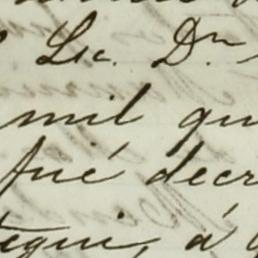 Lic. Dn
mil qu
fué decr
tegui, á